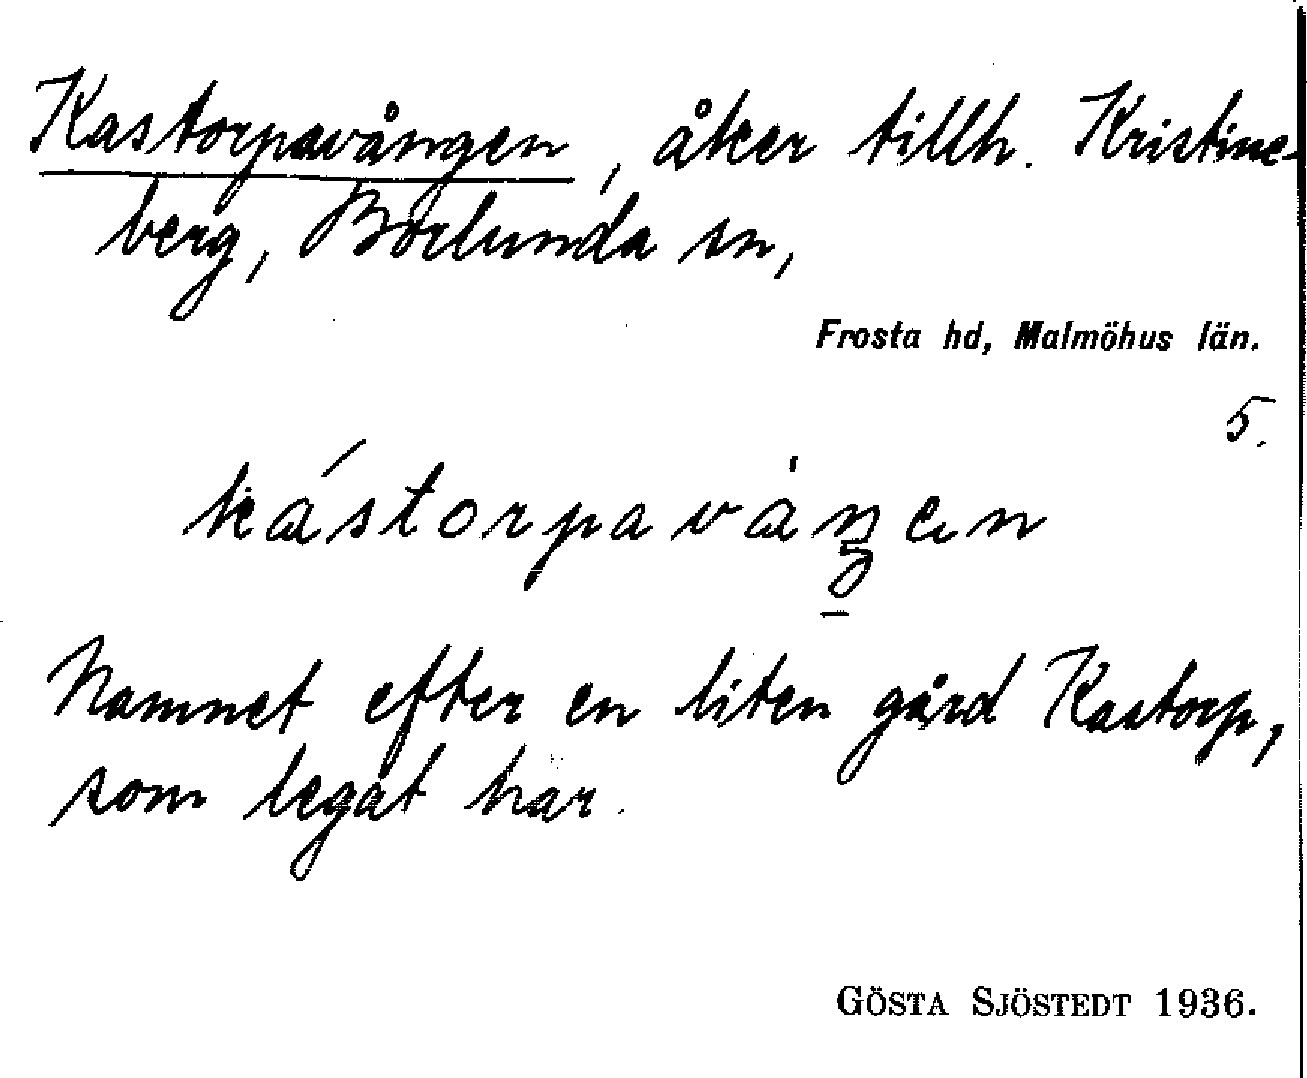 Kastorpavången, åker tillh. Kristine-
berg, Borlunda sn,
Frosta hd, Malmöhus län.
5.
kástorpavaŋen
Namnet efter en liten gård Kastorp,
som legat här.
GÖSTA SJÖSTEDT 1936.